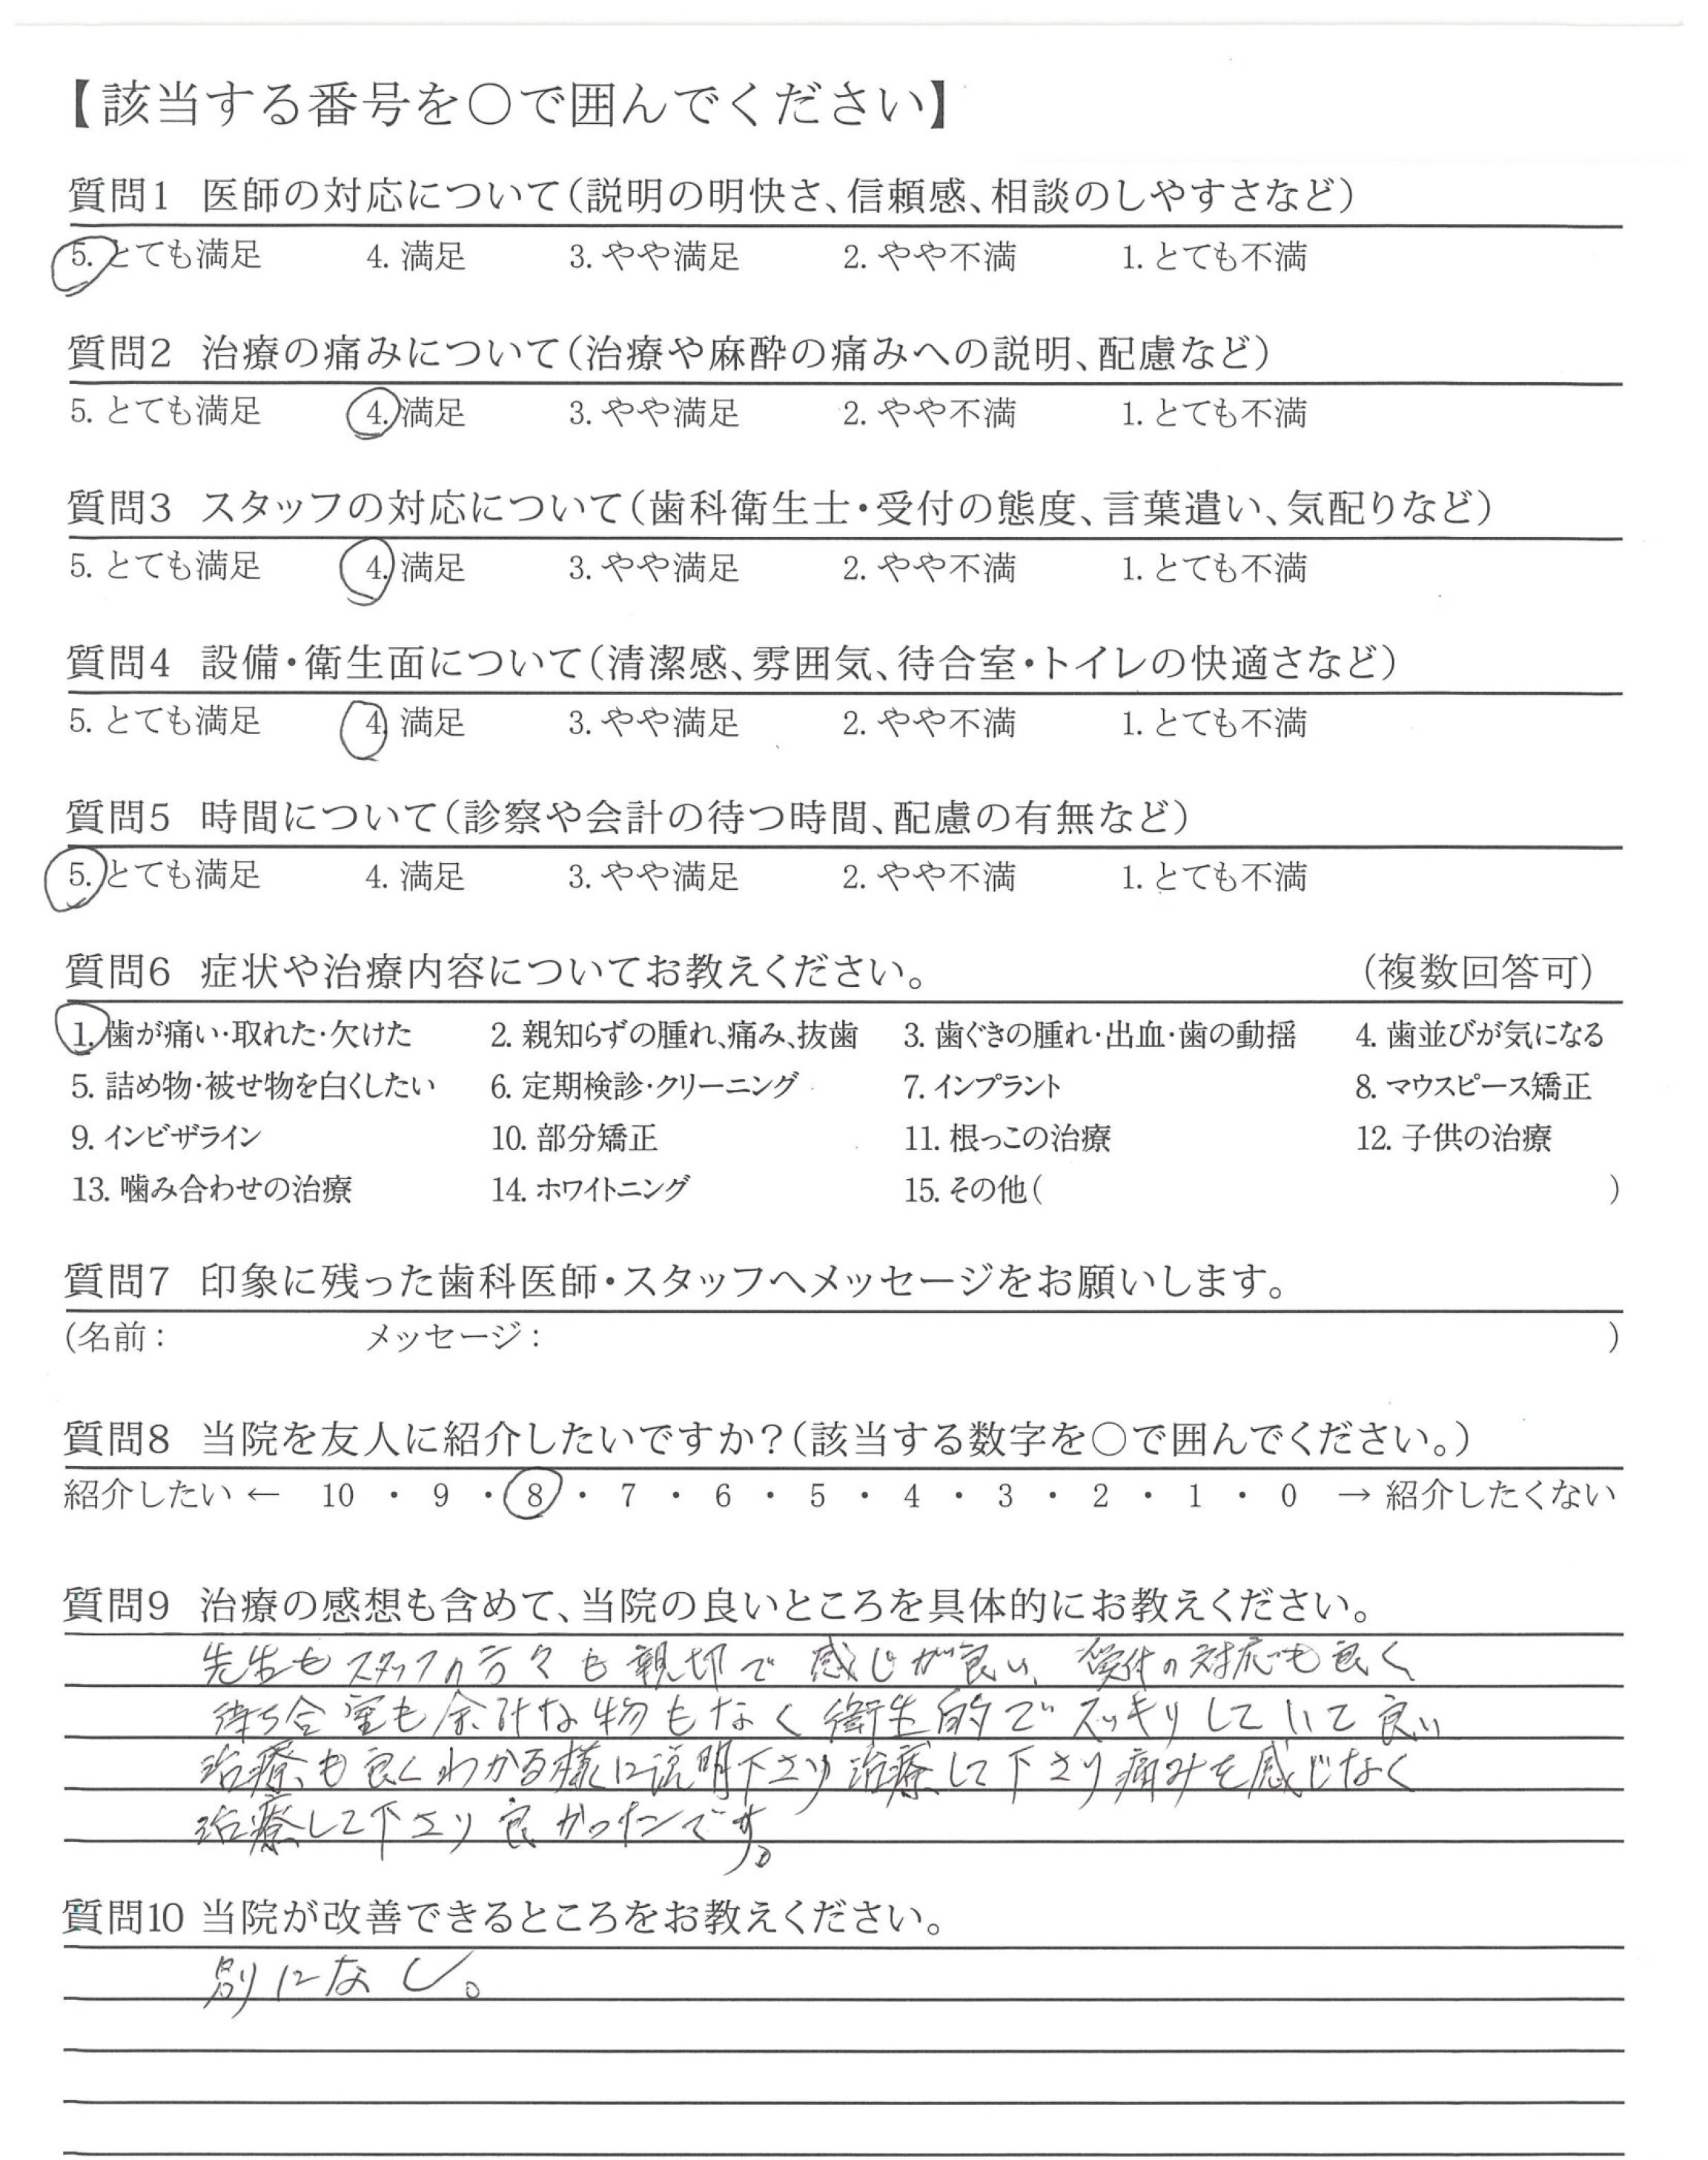 【該当する番号を○で囲んでください】
質問1 医師の対応について(説明の明快さ、信頼感、相談のしやすさなど)
5. とても満足 4. 満足 3. やや満足 2. やや不満 1. とても不満
質問2 治療の痛みについて(治療や麻酔の痛みへの説明、配慮など)
5. とても満足 4. 満足 3. やや満足 2. やや不満 1. とても不満
質問3 スタッフの対応について(歯科衛生士・受付の態度、言葉遣い、気配りなど)
5. とても満足 4. 満足 3. やや満足 2. やや不満 1. とても不満
質問4 設備・衛生面について(清潔感、雰囲気、待合室・トイレの快適さなど)
5. とても満足 4. 満足 3. やや満足 2. やや不満 1. とても不満
質問5 時間について(診察や会計の待つ時間、配慮の有無など)
5. とても満足 4. 満足 3. やや満足 2. やや不満 1. とても不満
質問6 症状や治療内容についてお教えください。 (複数回答可)
1. 歯が痛い・取れた・欠けた 2. 親知らずの腫れ、痛み、抜歯 3. 歯ぐきの腫れ・出血・歯の動揺 4. 歯並びが気になる
5. 詰め物・被せ物を白くしたい 6. 定期検診・クリーニング 7. インプラント 8. マウスピース矯正
9. インビザライン 10. 部分矯正 11. 根っこの治療 12. 子供の治療
13. 噛み合わせの治療 14. ホワイトニング 15. その他( )
質問7 印象に残った歯科医師・スタッフへメッセージをお願いします。
(名前: メッセージ: )
質問8 当院を友人に紹介したいですか?(該当する数字を○で囲んでください。)
紹介したい ← 10 ・ 9 ・ 8 ・ 7 ・ 6 ・ 5 ・ 4 ・ 3 ・ 2 ・ 1 ・ 0 → 紹介したくない
質問9 治療の感想も含めて、当院の良いところを具体的にお教えください。
先生もスタッフの方々も親切で感じが良い、受付の対応も良く
待ち合室も余計な物もなく衛生的でスッキリしていて良い
治療も良くわかる様に説明下さり治療して下さり痛みを感じなく
治療して下さり良かったです。
質問10 当院が改善できるところをお教えください。
別になし。